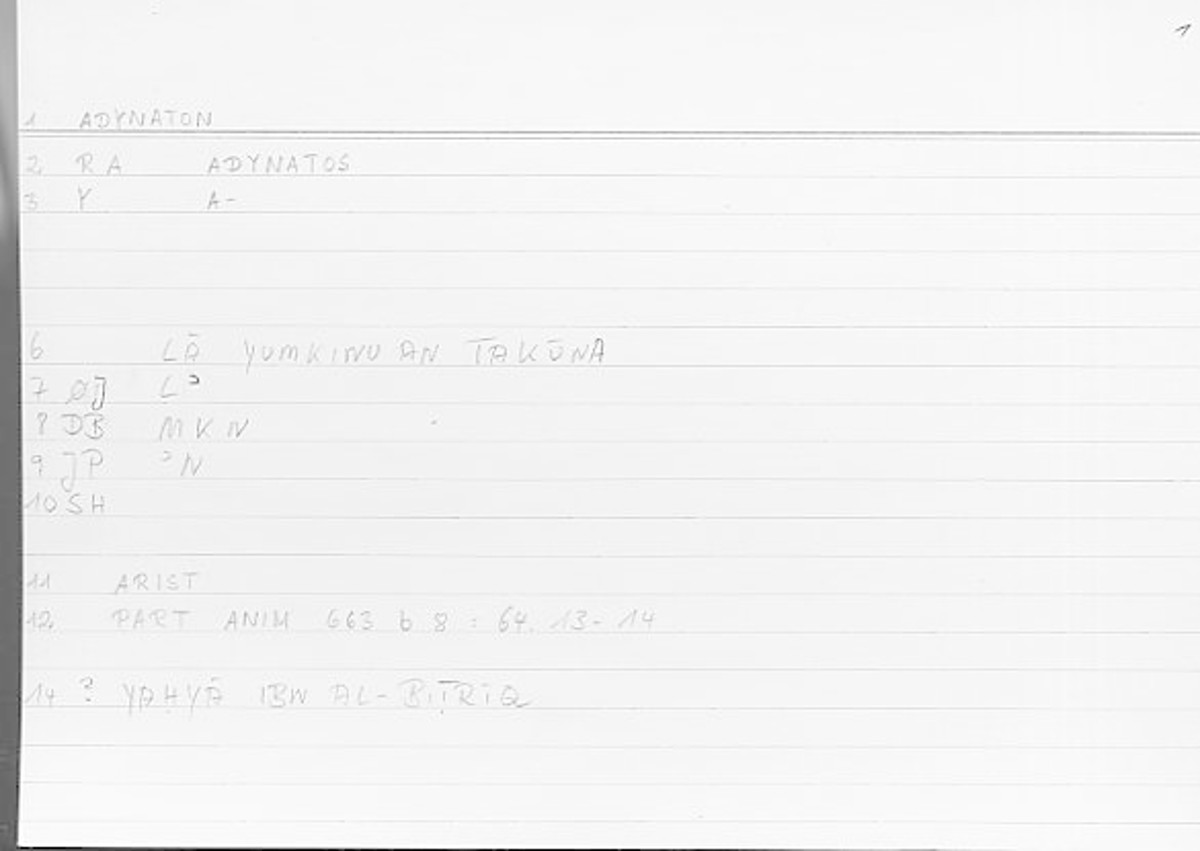 1
1 ADYNATON
2 RA ADYNATOS
3 Y A-
6 LĀ YUMKINU AN TAKŪNA
7 ØJ Lʾ
8 DB MKN
9 JP ʾN
10 SH
11 ARIST
12 PART ANIM 663 b 8 : 64. 13-14
14 ? YAḤYĀ IBN AL-BIṬRĪQ